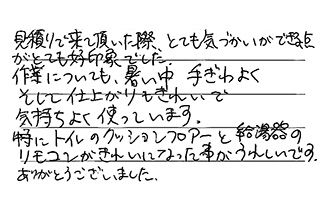 見積りで来て頂いた際、とても気づかいができる点
がとても好印象でした。
作業についても、暑い中 手ぎわよく
そして仕上がりもきれいで
気持ちよく使っています。
特にトイレのクッションフロアーと給湯器の
リモコンがきれいになった事がうれしいです。
ありがとうございました。